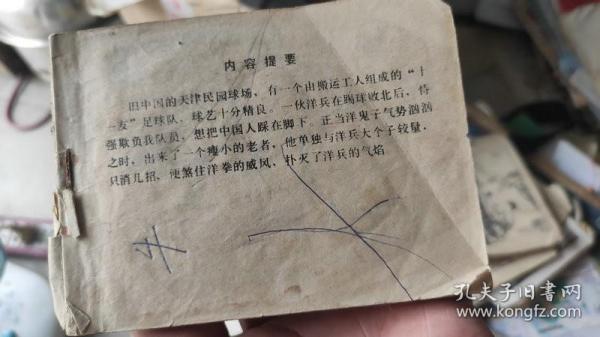 内容提要
旧中国的天津民园球场，有一个由搬运工人组成的“十
一友”足球队，球艺十分精良。一伙洋兵在踢球败北后，恃
强欺负我队员，想把中国人踩在脚下。正当洋鬼子气势汹汹
之时，出来了一个瘦小的老者，他单独与洋兵大个子较量，
只消几招，便煞住洋拳的威风，扑灭了洋兵的气焰
孔夫子旧书网
www.kongfz.com